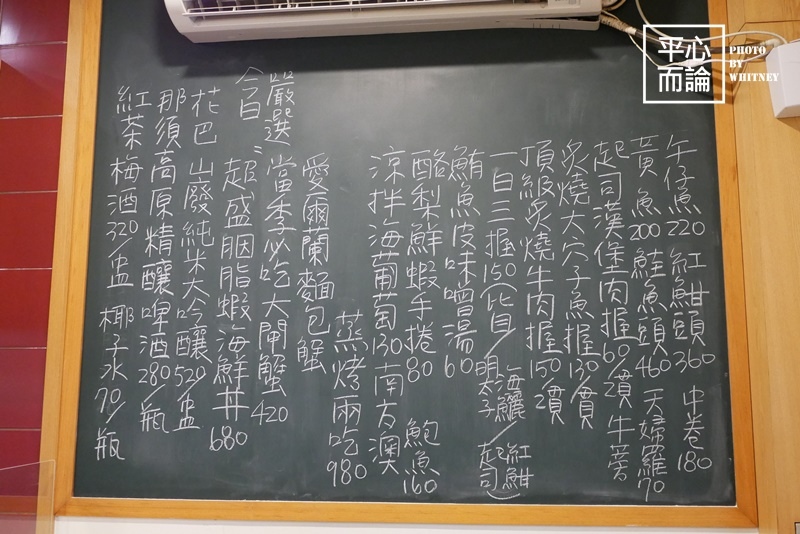 午仔魚220 紅魽頭360 中卷180
黃魚200 鮭魚頭460 天婦羅70
起司漢堡肉握60/貫 牛蒡
炙燒大穴子魚握130/貫
頂級炙燒牛肉握150/貫
一白三握150(比目/明太子海鱺/起司紅魽)
鮪魚皮味噌湯60
酪梨鮮蝦手捲80 鮑魚160
涼拌海葡萄130 南方澳
蒸烤兩吃980
愛爾蘭麵包蟹
當季必吃大閘蟹420
嚴選
今日
超盛胭脂蝦海鮮丼680
花巴 山廢純米大吟釀520/盅
那須高原精釀啤酒280/瓶
紅茶梅酒320/盅 椰子水70/瓶
平心而論
PHOTO
BY
WHITNEY